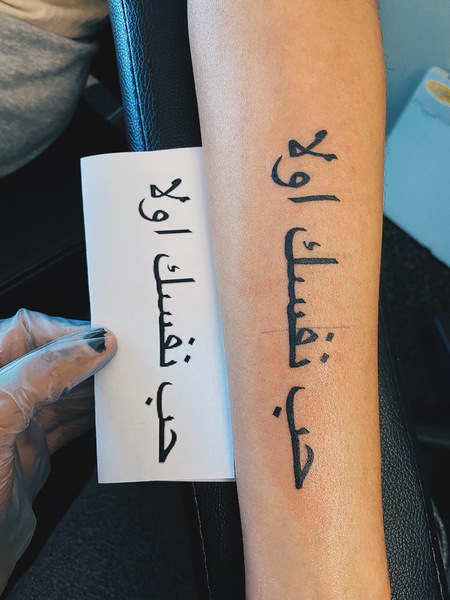 حب نفسك اولا
حب نفسك اولا